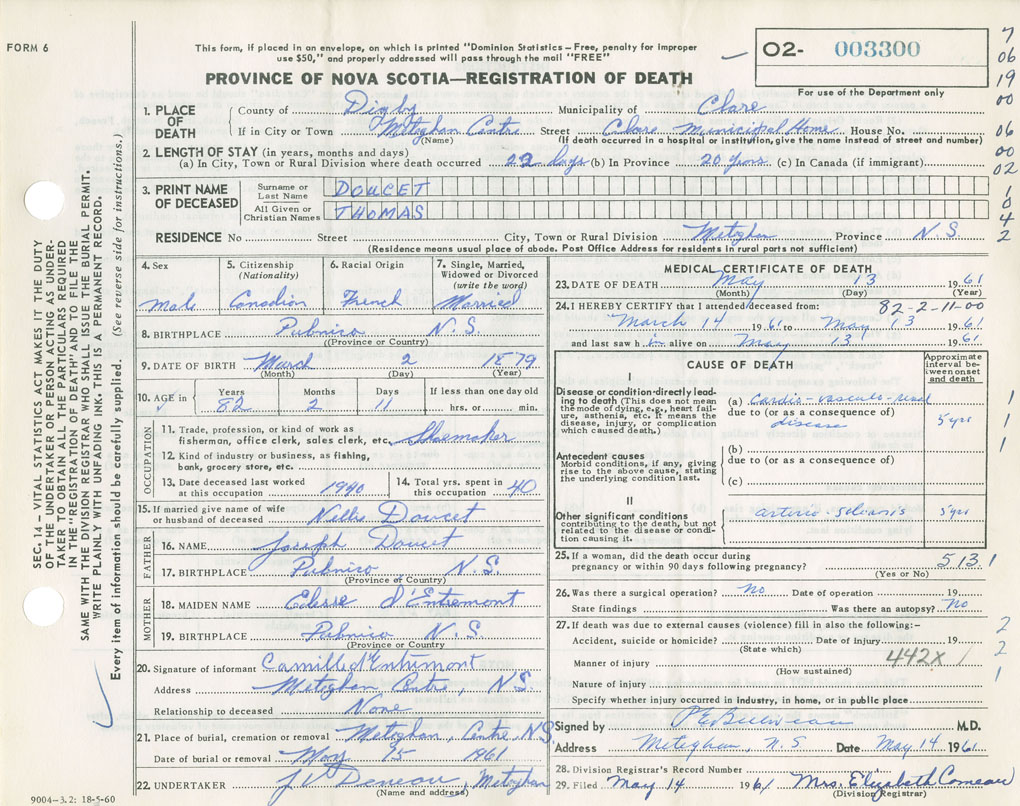 FORM 6
This form, if placed in an envelope, on which is printed "Dominion Statistics – Free, penalty for improper
use $50," and properly addressed will pass through the mail "FREE"
PROVINCE OF NOVA SCOTIA—REGISTRATION OF DEATH
O2- 003300
For use of the Department only
7
06
19
00
06
00
02
1
0
4
2
SEC. 14 – VITAL STATISTICS ACT MAKES IT THE DUTY
OF THE UNDERTAKER OR PERSON ACTING AS UNDER-
TAKER TO OBTAIN ALL THE PARTICULARS REQUIRED
IN THE "REGISTRATION OF DEATH" AND TO FILE THE
SAME WITH THE DIVISION REGISTRAR WHO SHALL ISSUE THE BURIAL PERMIT.
WRITE PLAINLY WITH UNFADING INK. THIS IS A PERMANENT RECORD.
Every item of information should be carefully supplied. (See reverse side for instructions.)
1. PLACE OF DEATH
County of Digby Municipality of Clare
If in City or Town Meteghan Centre Street Clare Municipal Home House No.
(Name) (If death occurred in a hospital or institution, give the name instead of street and number)
2. LENGTH OF STAY (in years, months and days)
(a) In City, Town or Rural Division where death occurred 22 days (b) In Province 20 years (c) In Canada (if immigrant)
3. PRINT NAME OF DECEASED
Surname or Last Name DOUCET
All Given or Christian Names THOMAS
RESIDENCE No Street City, Town or Rural Division Meteghan Province N.S
(Residence means usual place of abode. Post Office Address for residents in rural parts not sufficient)
4. Sex Male
5. Citizenship (Nationality) Canadian
6. Racial Origin French
7. Single, Married, Widowed or Divorced (write the word) Married
8. BIRTHPLACE Pubnico N.S.
(Province or Country)
9. DATE OF BIRTH March 2 1879
(Month) (Day) (Year)
10. AGE in Years 82 Months 2 Days 11 If less than one day old hrs. or min.
OCCUPATION
11. Trade, profession, or kind of work as
fisherman, office clerk, sales clerk, etc. Shoemaker
12. Kind of industry or business, as fishing,
bank, grocery store, etc.
13. Date deceased last worked at this occupation 1940
14. Total yrs. spent in this occupation 40
15. If married give name of wife
or husband of deceased Doucet
FATHER
16. NAME Joseph Doucet
17. BIRTHPLACE Pubnico N.S.
(Province or Country)
MOTHER
18. MAIDEN NAME d'Entremont
19. BIRTHPLACE Pubnico N.S.
(Province or Country)
20. Signature of informant Camille d'Entremont
Address Meteghan Centre, N S
Relationship to deceased None
21. Place of burial, cremation or removal Meteghan, Centre, NS
Date of burial or removal May 15 1961
22. UNDERTAKER Deneau, Meteghan
(Name and address)
9004–3.2: 18-5-60
MEDICAL CERTIFICATE OF DEATH
23. DATE OF DEATH May 13 1961
(Month) (Day) (Year)
24. I HEREBY CERTIFY that I attended deceased from: 82-2-11-00
March 14 1961 to May 13 1961
and last saw him alive on May 13 1961
CAUSE OF DEATH
Approximate interval between onset and death
I
Disease or condition directly leading
to death (This does not mean
the mode of dying, e.g., heart failure,
asthenia, etc. It means the
disease, injury, or complication
which caused death.)
(a) Cardio-vasculo-renal
due to (or as a consequence of)
disease 5 yrs
1
1
1
Antecedent causes
Morbid conditions, if any, giving
rise to the above cause, stating
the underlying condition last.
(b)
due to (or as a consequence of)
(c)
II
Other significant conditions
contributing to the death, but not
related to the disease or condition
causing it.
arterio-sclerosis 5 yrs
25. If a woman, did the death occur during
pregnancy or within 90 days following pregnancy?
(Yes or No)
5131
26. Was there a surgical operation? No Date of operation 19
State findings Was there an autopsy? No
27. If death was due to external causes (violence) fill in also the following:–
Accident, suicide or homicide? Date of injury 19
(State which)
442X
2
2
1
Manner of injury
(How sustained)
Nature of injury
Specify whether injury occurred in industry, in home, or in public place
Signed by M.D.
Address Meteghan, N.S Date May 14 1961
28. Division Registrar's Record Number
29. Filed May 14 1961 Mrs. Elizabeth Comeau
(Division Registrar)